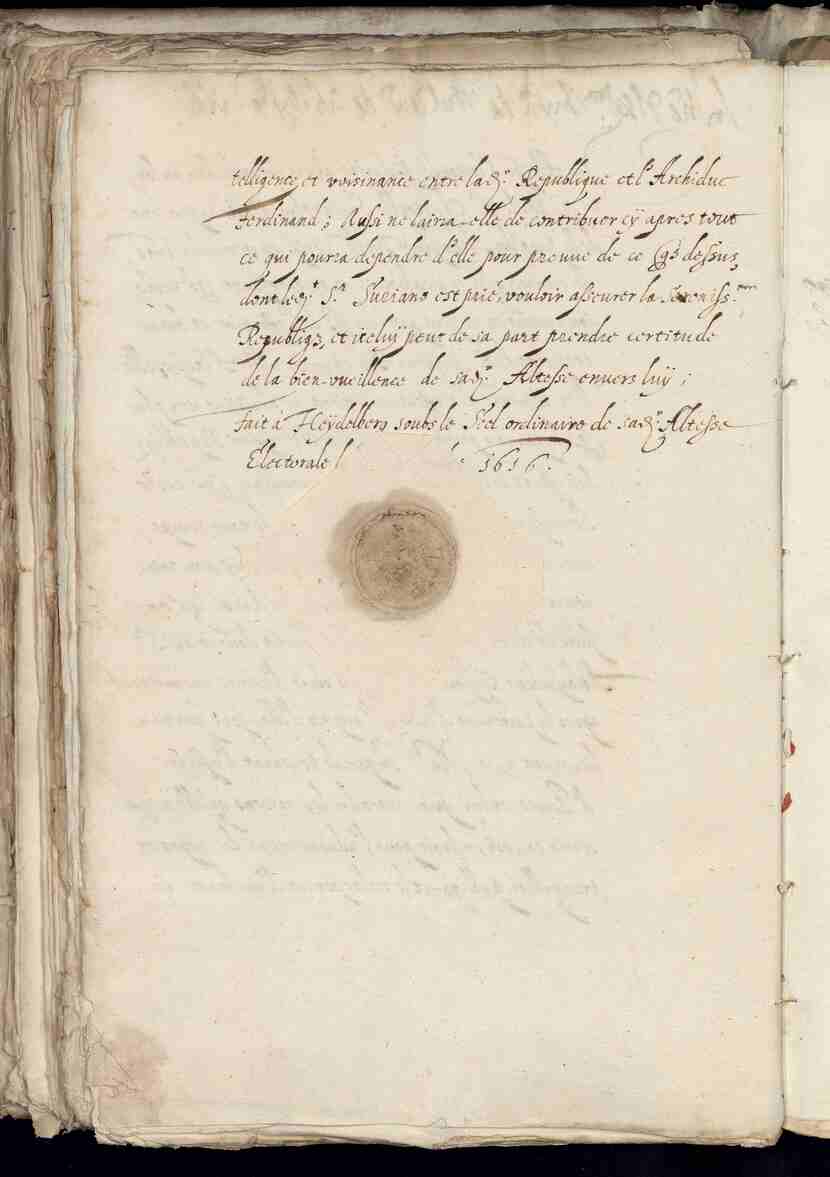 telligence et voisinance entre lad.ᵉ Republique et l'Archiduc
Ferdinand; Aussi ne lairra-elle de contribuer cy apres tout
ce qui pourra dependre d'elle pour preuve de ce que dessus,
dont led.ᵗ S.ʳ Suriano est prié, vouloir asseurer la Sereniss.ᵐᵉ
Republiq3, et iceluÿ peut de sa part prendre certitude
de la bien-vueillence de sad.ᵉ Altesse envers luÿ;
fait à Heÿdelberg soubs le Seel ordinaire de sad.ᵉ Altesse
Electorale 1616.